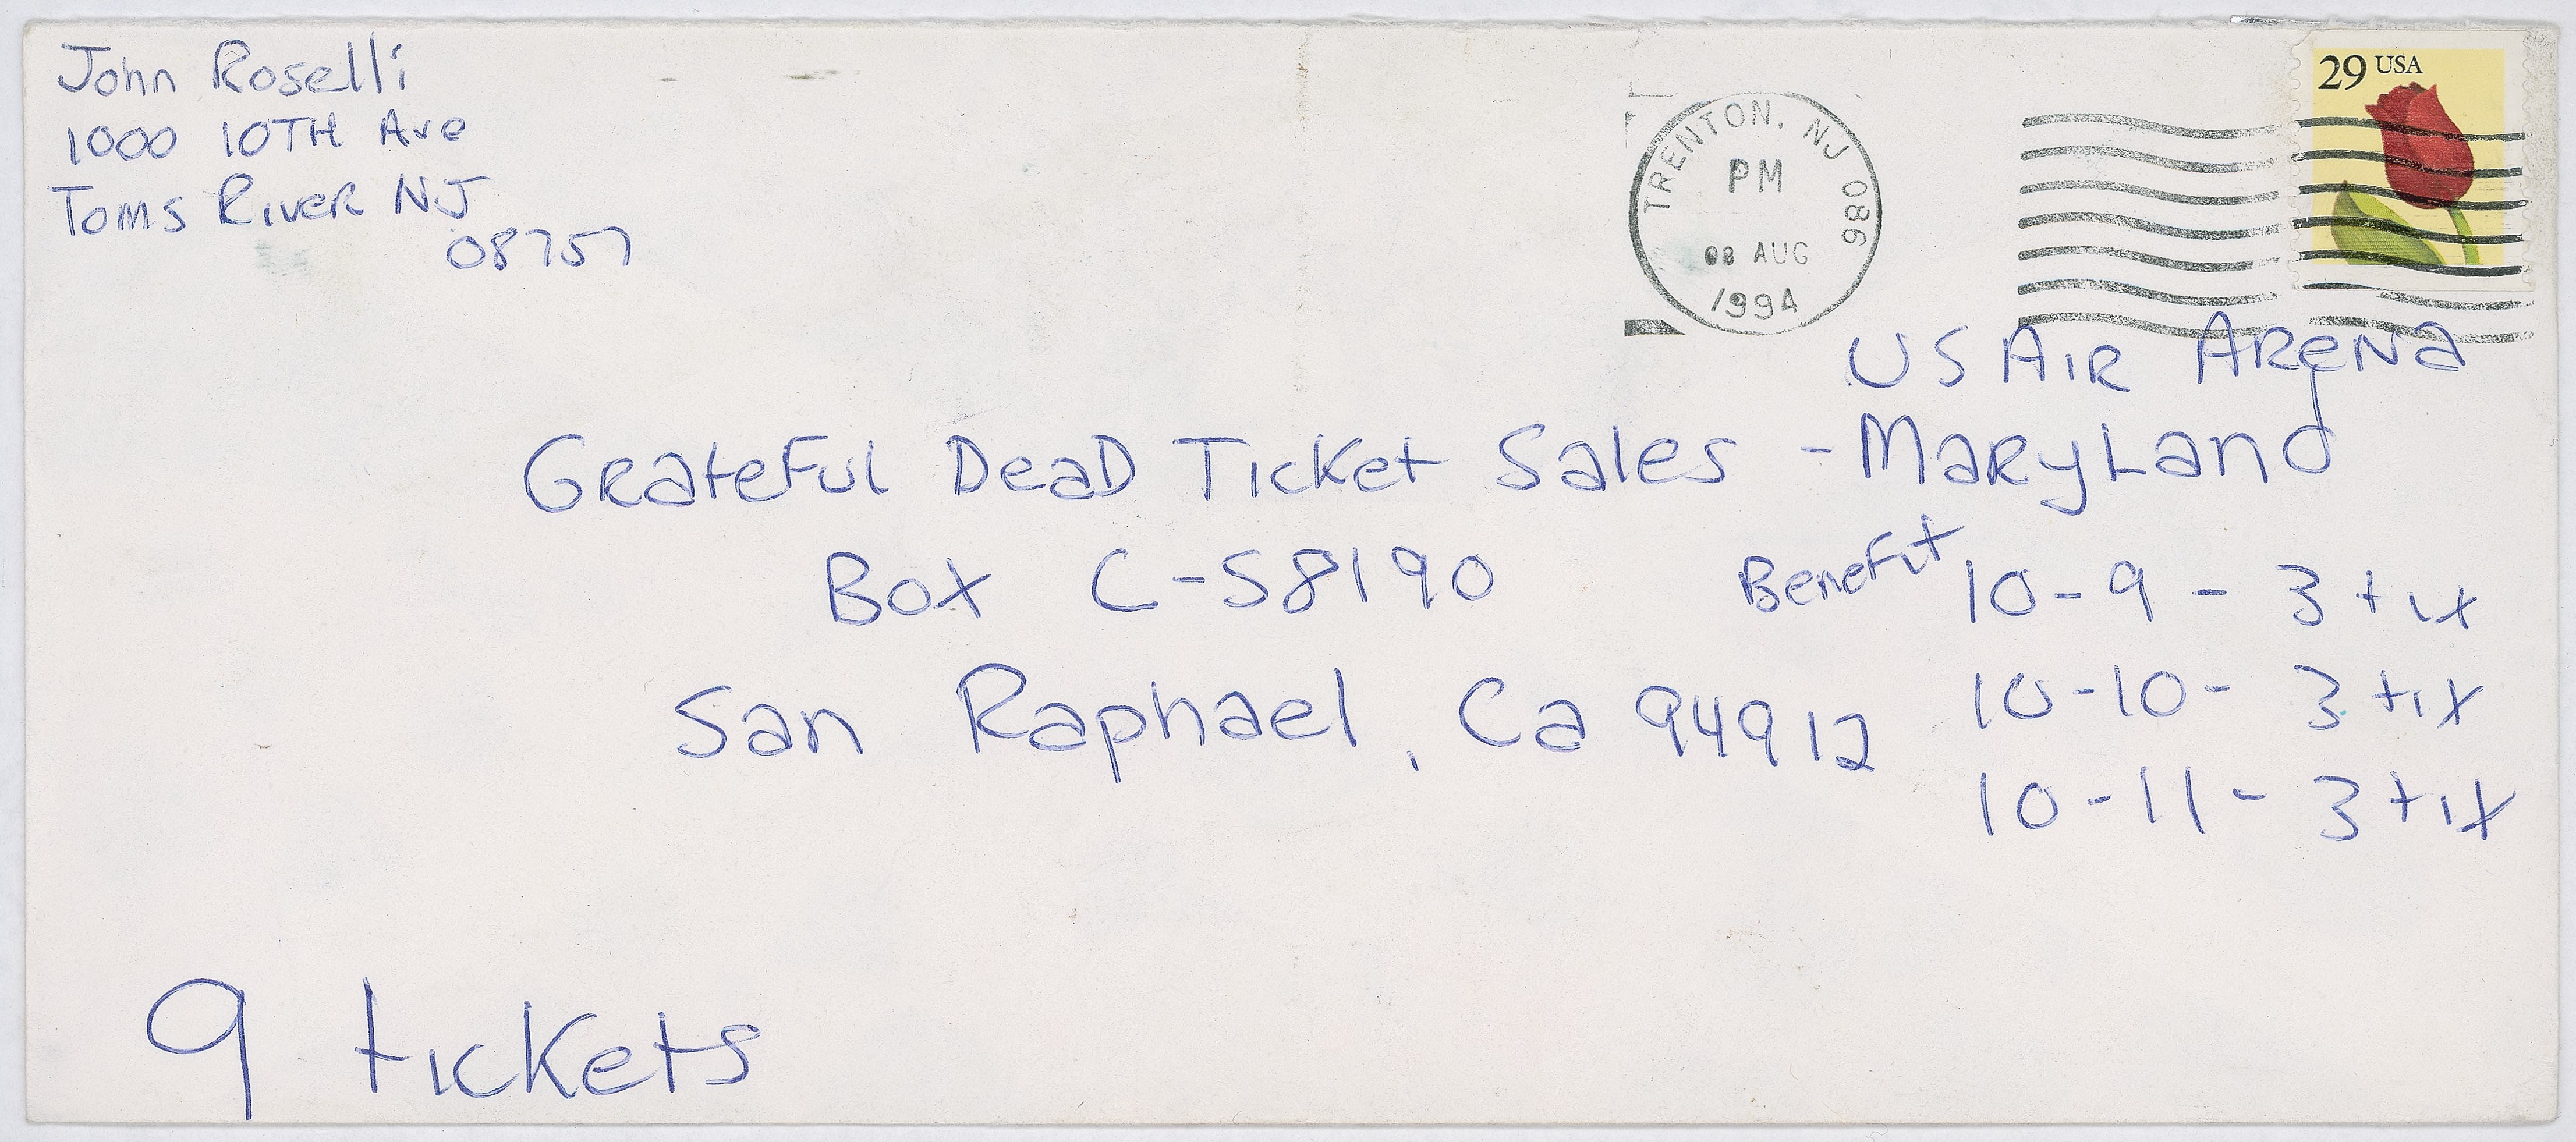 John Roselli
1000 10TH Ave
Toms River NJ
08757
TRENTON, NJ 086
PM
08 AUG
1994
29 USA
US Air Arena
Grateful Dead Ticket Sales - Maryland
Box C-58190
Benefit 10-9 - 3 tix
San Raphael, Ca 94912
10-10- 3 tix
10-11- 3 tix
9 tickets